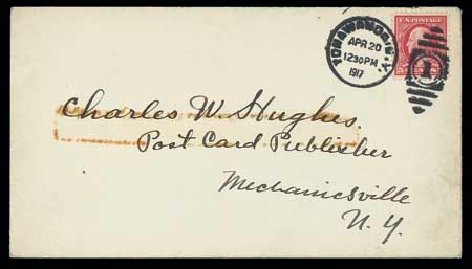 TONAWANDA, N.Y.
APR 20
12:30 PM
1917
U.S. POSTAGE
1
Charles W. Hughes.
Post Card Publisher
Mechanicsville
N. Y.